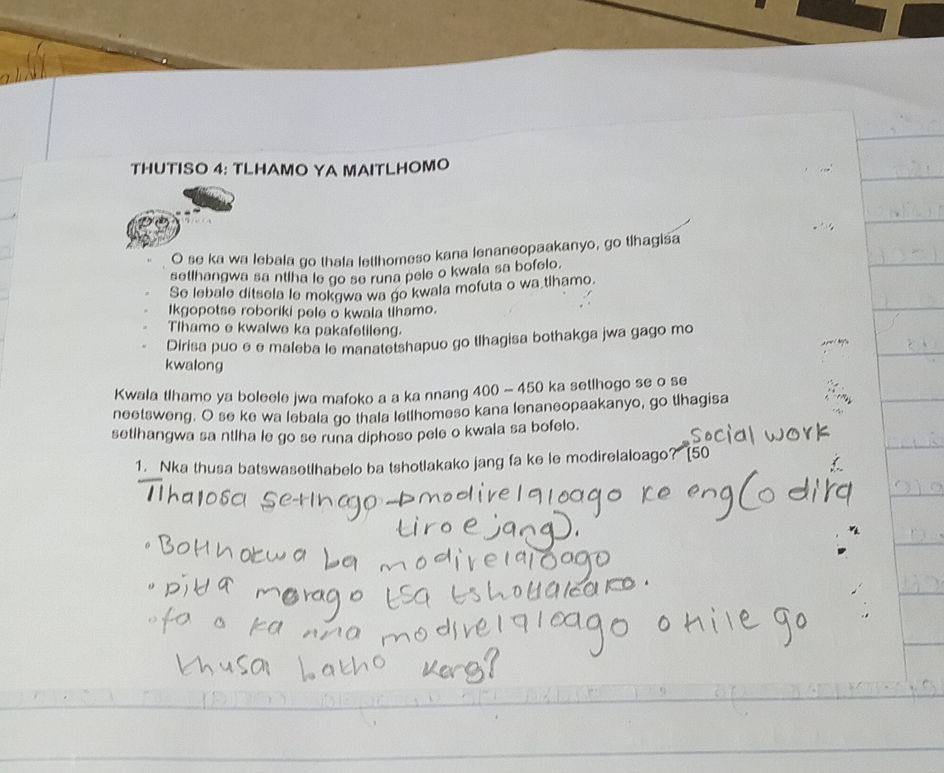 THUTISO 4: TLHAMO YA MAITLHOMO
O se ka wa lebala go thala letlhomeso kana lenaneopaakanyo, go tlhagisa
setlhangwa sa ntlha le go se runa pele o kwala sa bofelo.
Se lebale ditsela le mokgwa wa go kwala mofuta o wa tlhamo.
Ikgopotse roboriki pele o kwala tlhamo.
Tlhamo e kwalwe ka pakafetileng.
Dirisa puo e e maleba le manatetshapuo go tlhagisa bothakga jwa gago mo
kwalong
Kwala tlhamo ya boleele jwa mafoko a a ka nnang 400 – 450 ka setlhogo se o se
neetsweng. O se ke wa lebala go thala letlhomeso kana lenaneopaakanyo, go tlhagisa
setlhangwa sa ntlha le go se runa diphoso pele o kwala sa bofelo.
Social work
1. Nka thusa batswasetlhabelo ba tshotlakako jang fa ke le modirelaloago? [50
Tlhalosa setlhogo modirelaloago ke eng (o dira
tiro e jang).
• Botlhokwa ba modirelaloago
• Ditla morago tsa tshotlakako.
• fa o ka nna modirelaloago o tlile go
thusa batho kang?